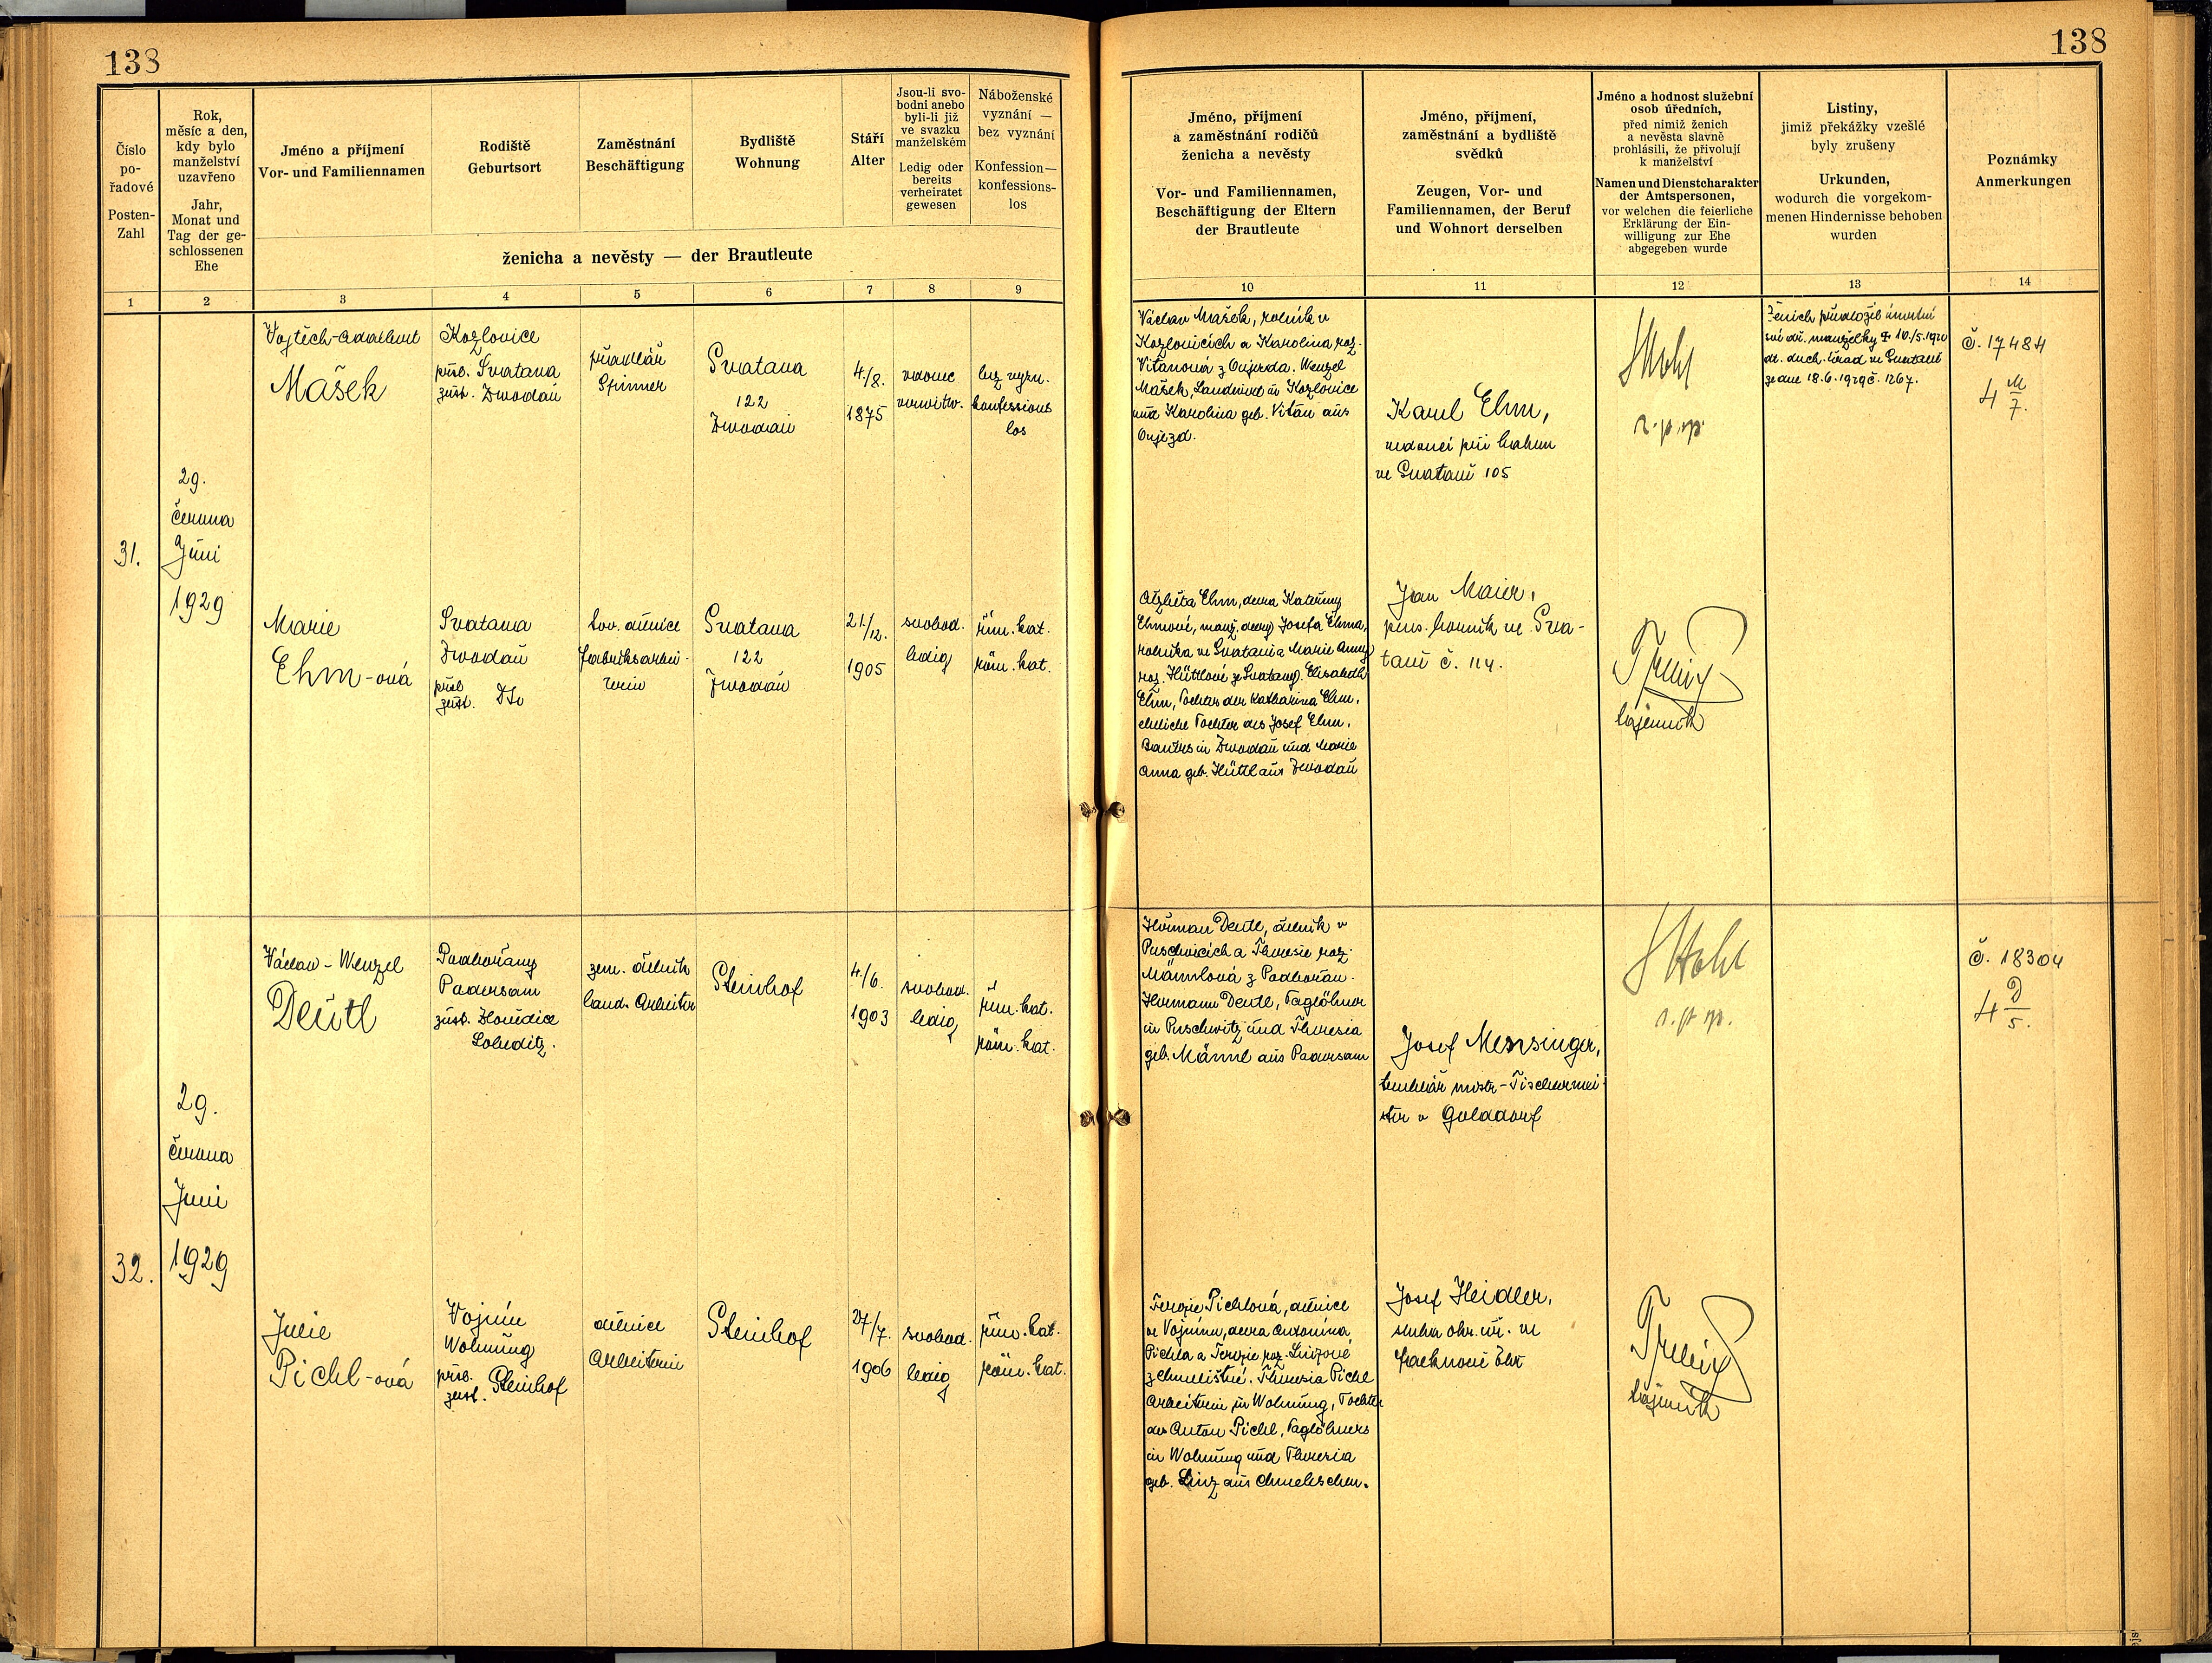 138
Číslo
po-
řadové
Posten-
Zahl
Rok,
měsíc a den,
kdy bylo
manželství
uzavřeno
Jahr,
Monat und
Tag der ge-
schlossenen
Ehe
Jméno a příjmení
Vor- und Familiennamen
Rodiště
Geburtsort
Zaměstnání
Beschäftigung
Bydliště
Wohnung
Stáří
Alter
Jsou-li svo-
bodni anebo
byli-li již
ve svazku
manželském
Ledig oder
bereits
verheiratet
gewesen
Náboženské
vyznání —
bez vyznání
Konfession—
konfessions-
los
ženicha a nevěsty — der Brautleute
1 2 3 4 5 6 7 8 9
31.
29.
června
Juni
1929
Vojtěch-Adalbert
Mašek
Kozlovice
přísl. Svatava
zust. Zwodau
přadlář
Spinner
Svatava
122
Zwodau
4./8.
1875
vdovec
verwitw.
bez vyzn.
konfessions
los
Marie
Ehm-ová
Svatava
Zwodau
přísl.
zust. Dto
tov. dělnice
Fabriksarbei-
terin
Svatava
122
Zwodau
21./12.
1905
svobod.
ledig
řím. kat.
röm. kat.
32.
29.
června
Juni
1929
Václav - Wenzel
Deutl
Podbořany
Podersam
zust.
Lobeditz.
zem. dělník
land. Arbeiter
Steinhof
4./6.
1903
svobod.
ledig
řím. kat.
röm. kat.
Julie
Pichl-ová
Vojnín
Wohnung
přísl.
zust. Steinhof
dělnice
Arbeiterin
Steinhof
27/7.
1906
svobod.
ledig
řím. kat.
röm. kat.
138
Jméno, příjmení
a zaměstnání rodičů
ženicha a nevěsty
Vor- und Familiennamen,
Beschäftigung der Eltern
der Brautleute
Jméno, příjmení,
zaměstnání a bydliště
svědků
Zeugen, Vor- und
Familiennamen, der Beruf
und Wohnort derselben
Jméno a hodnost služební
osob úředních,
před nimiž ženich
a nevěsta slavně
prohlásili, že přivolují
k manželství
Namen und Dienstcharakter
der Amtspersonen,
vor welchen die feierliche
Erklärung der Ein-
willigung zur Ehe
abgegeben wurde
Listiny,
jimiž překážky vzešlé
byly zrušeny
Urkunden,
wodurch die vorgekom-
menen Hindernisse behoben
wurden
Poznámky
Anmerkungen
10 11 12 13 14
Václav Mašek, rolník v
Kozlovicích a Karolina roz.
Vitanová z Oujezda. Wenzel
Mašek, Landwirt in Kozlovice
und Karolina geb. Vitan aus
Oujezd.
Karel Ehm,
vedoucí při
ve Svatavě 105
Ženich předložil úmrtní
manželky † 10./5.1920
duch. úřad ve Svatavě
ze dne 18.6.1929 č. 1267.
č. 17484
4 M/7.
Alžběta Ehm, dcera Kateřiny
Ehmové, manž. dcery Josefa Ehma,
rolníka ve Svatavě a Marie Anny
roz. Hüttlové ze Svatavy. Elisabeth
Ehm, Tochter der Katharina Ehm,
eheliche Tochter des Josef Ehm,
Bauers in Zwodau und Marie
Anna geb. Hüttl aus Zwodau
Jan Maier,
pens. horník ve Sva-
tavě č. 114.
tajemník
Heřman Deutl, dělník v
Puschvicích a Theresie roz.
Männlová z Podbořan.
Hermann Deutl, Taglöhner
in Puschwitz und Theresia
geb. Männl aus Podersam
Josef Messinger,
truhlář mistr-Tischlermei-
ster v Golddorf
č. 18304
4 D/5.
Terezie Pichlová, dělnice
ve Vojnínu, dcera Antonína
Pichla a Terezie roz. Linzové
z Chmelištné. Theresia Pichl
Arbeiterin in Wohnung, Tochter
des Anton Pichl, Taglöhners
in Wohnung und Theresia
geb. Linz aus Chmelischen.
Josef Heidler,
sluha okr. úř. ve
tajemník